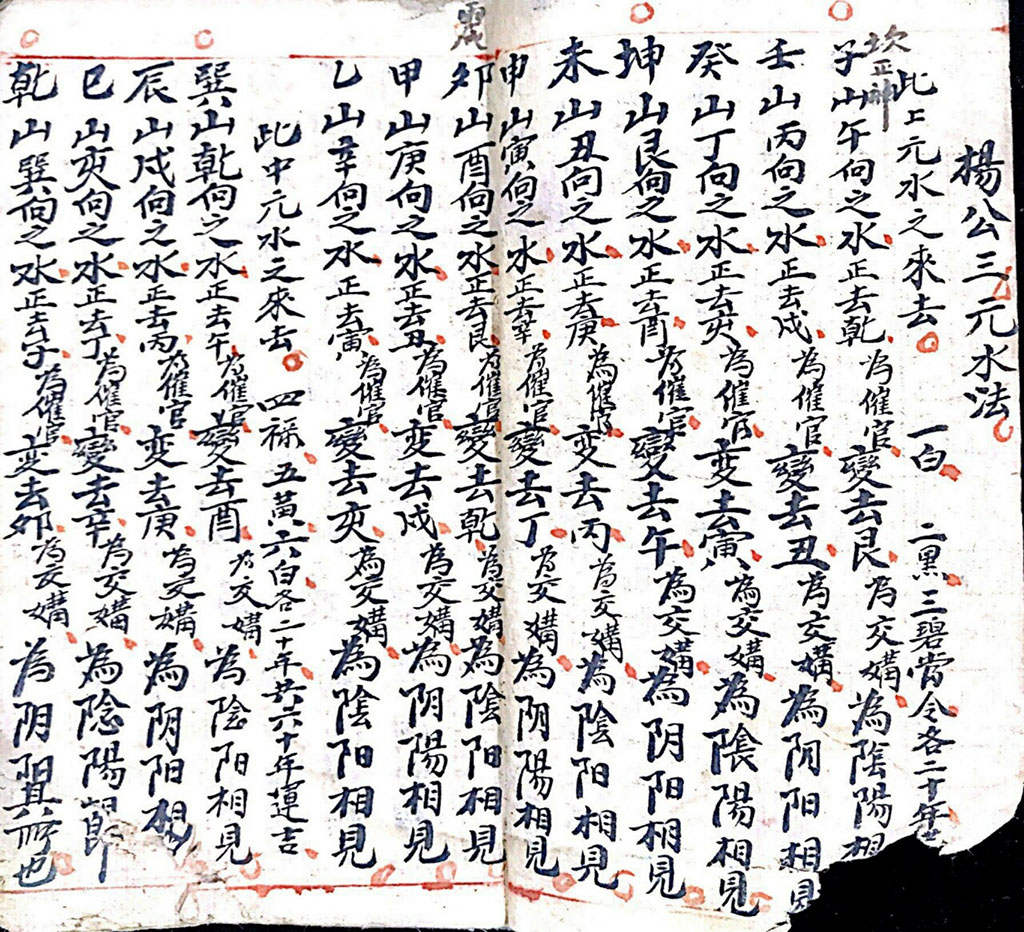 楊公三元水法
坎正神
此上元水之來去 一白 二黑 三碧當令各二十年
子山午向之水正去乾為催官變去艮為交媾為陰陽相
壬山丙向之水正去戌為催官變去丑為交媾為阴阳相見
癸山丁向之水正去亥為催官变去寅為交媾為陰陽相見
坤山艮向之水正去酉為催官變去午為交媾為阴阳相見
未山丑向之水正去庚為催官变去丙為交媾為陰阳相見
申山寅向之水正去辛為催官變去丁為交媾為阴陽相見
震
卯山酉向之水正去艮為催官變去乾為交媾為陰阳相見
甲山庚向之水正去丑為催官变去戌為交媾為阴陽相見
乙山辛向之水正去寅為催官變去亥為交媾為陰阳相見
此中元水之來去 四祿五黃六白各二十年共六十年運吉
巽山乾向之水正去午為催官變去酉為交媾為陰阳相見
辰山戌向之水正去丙為催官变去庚為交媾為阴阳相見
巳山亥向之水正去丁為催官變去辛為交媾為陰陽
乾山巽向之水正去子為催官变去卯為交媾為阴阳具所也